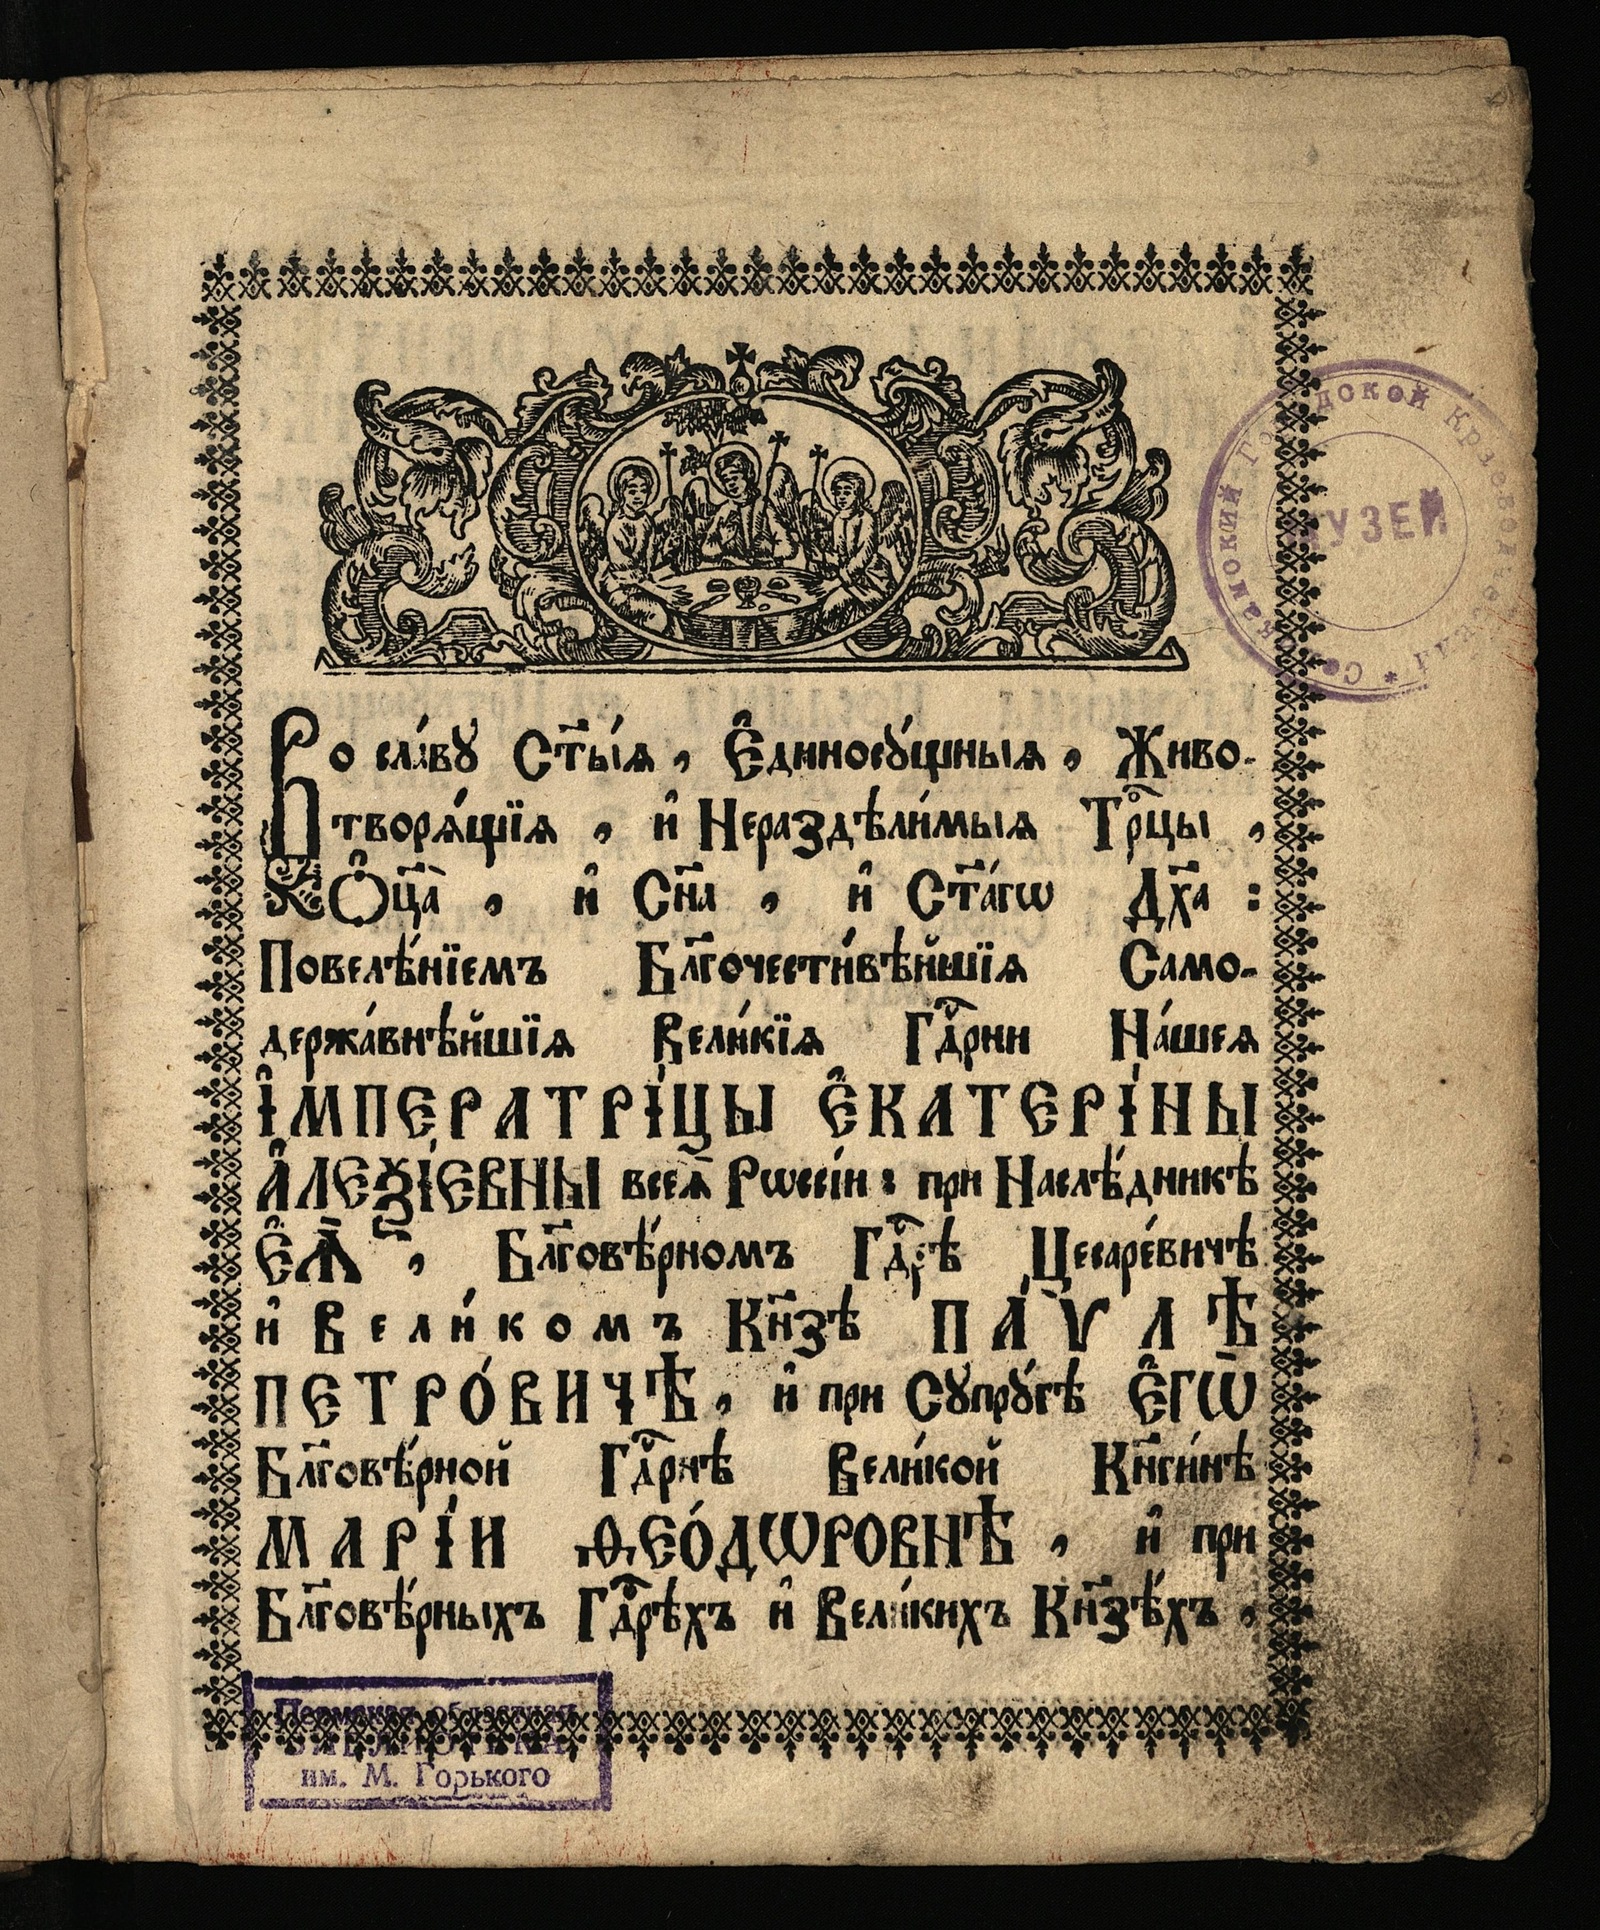 Во сла́вꙋ Ст҃ы́ѧ, Е҆диносꙋ́щныѧ, Живо-
творѧ́щїѧ, и҆ Нераздѣли́мыѧ Трⷪ҇цы,
Ѻ҆ц҃а̀, и҆ Сн҃а, и҆ Ст҃а́гѡ Дх҃а:
Повелѣ́нїемъ Бл҃гочести́вѣйшїѧ Само-
держа́внѣйшїѧ Вели́кїѧ Гдⷭ҇рни На́шеѧ
І҆МПЕРАТРІ́ЦЫ Е҆КАТЕРІ́НЫ
А҆ЛЕѮІ́ЕВНЫ всеѧ̀ Рѡссі́и: при Наслѣ́дникѣ
Е҆Ѧ̀, Бл҃говѣ́рномъ Гдⷭ҇рѣ Цесаре́вичѣ
и҆ Вели́комъ Кн҃зѣ ПА́ѴЛѢ
ПЕТРО́ВИЧѢ, и҆ при Сꙋпрꙋ́гѣ Е҆ГѠ̀
Бл҃говѣ́рной Гдⷭ҇рнѣ Вели́кой Кн҃ги́нѣ
МАРІ́И ѲЕО́ДѠРОВНѢ, и҆ при
Бл҃говѣ́рныхъ Гдⷭ҇рѣхъ и҆ Вели́кихъ Кн҃зѣ́хъ,
МУЗЕЙ
Пермская областная
БИБЛИОТЕКА
им. М. Горького